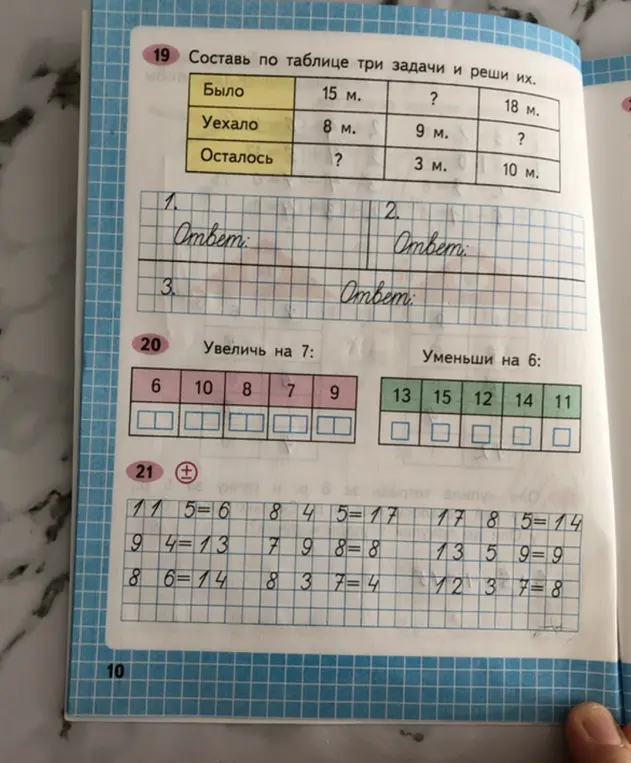 19 Составь по таблице три задачи и реши их.
Было 15 м. ? 18 м.
Уехало 8 м. 9 м. ?
Осталось ? 3 м. 10 м.
1. 2.
Ответ: Ответ:
3. Ответ:
20 Увеличь на 7: Уменьши на 6:
6 10 8 7 9 13 15 12 14 11
21 ±
11 5=6 8 4 5=17 17 8 5=14
9 4=13 7 9 8=8 13 5 9=9
8 6=14 8 3 7=4 12 3 7=8
10